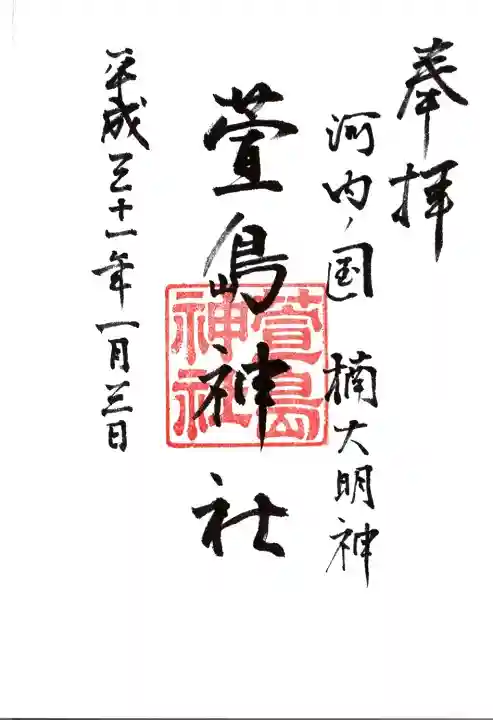 奉拝
河内ノ国 楠大明神
萱島神社
萱島
神社
平成三十一年一月三日